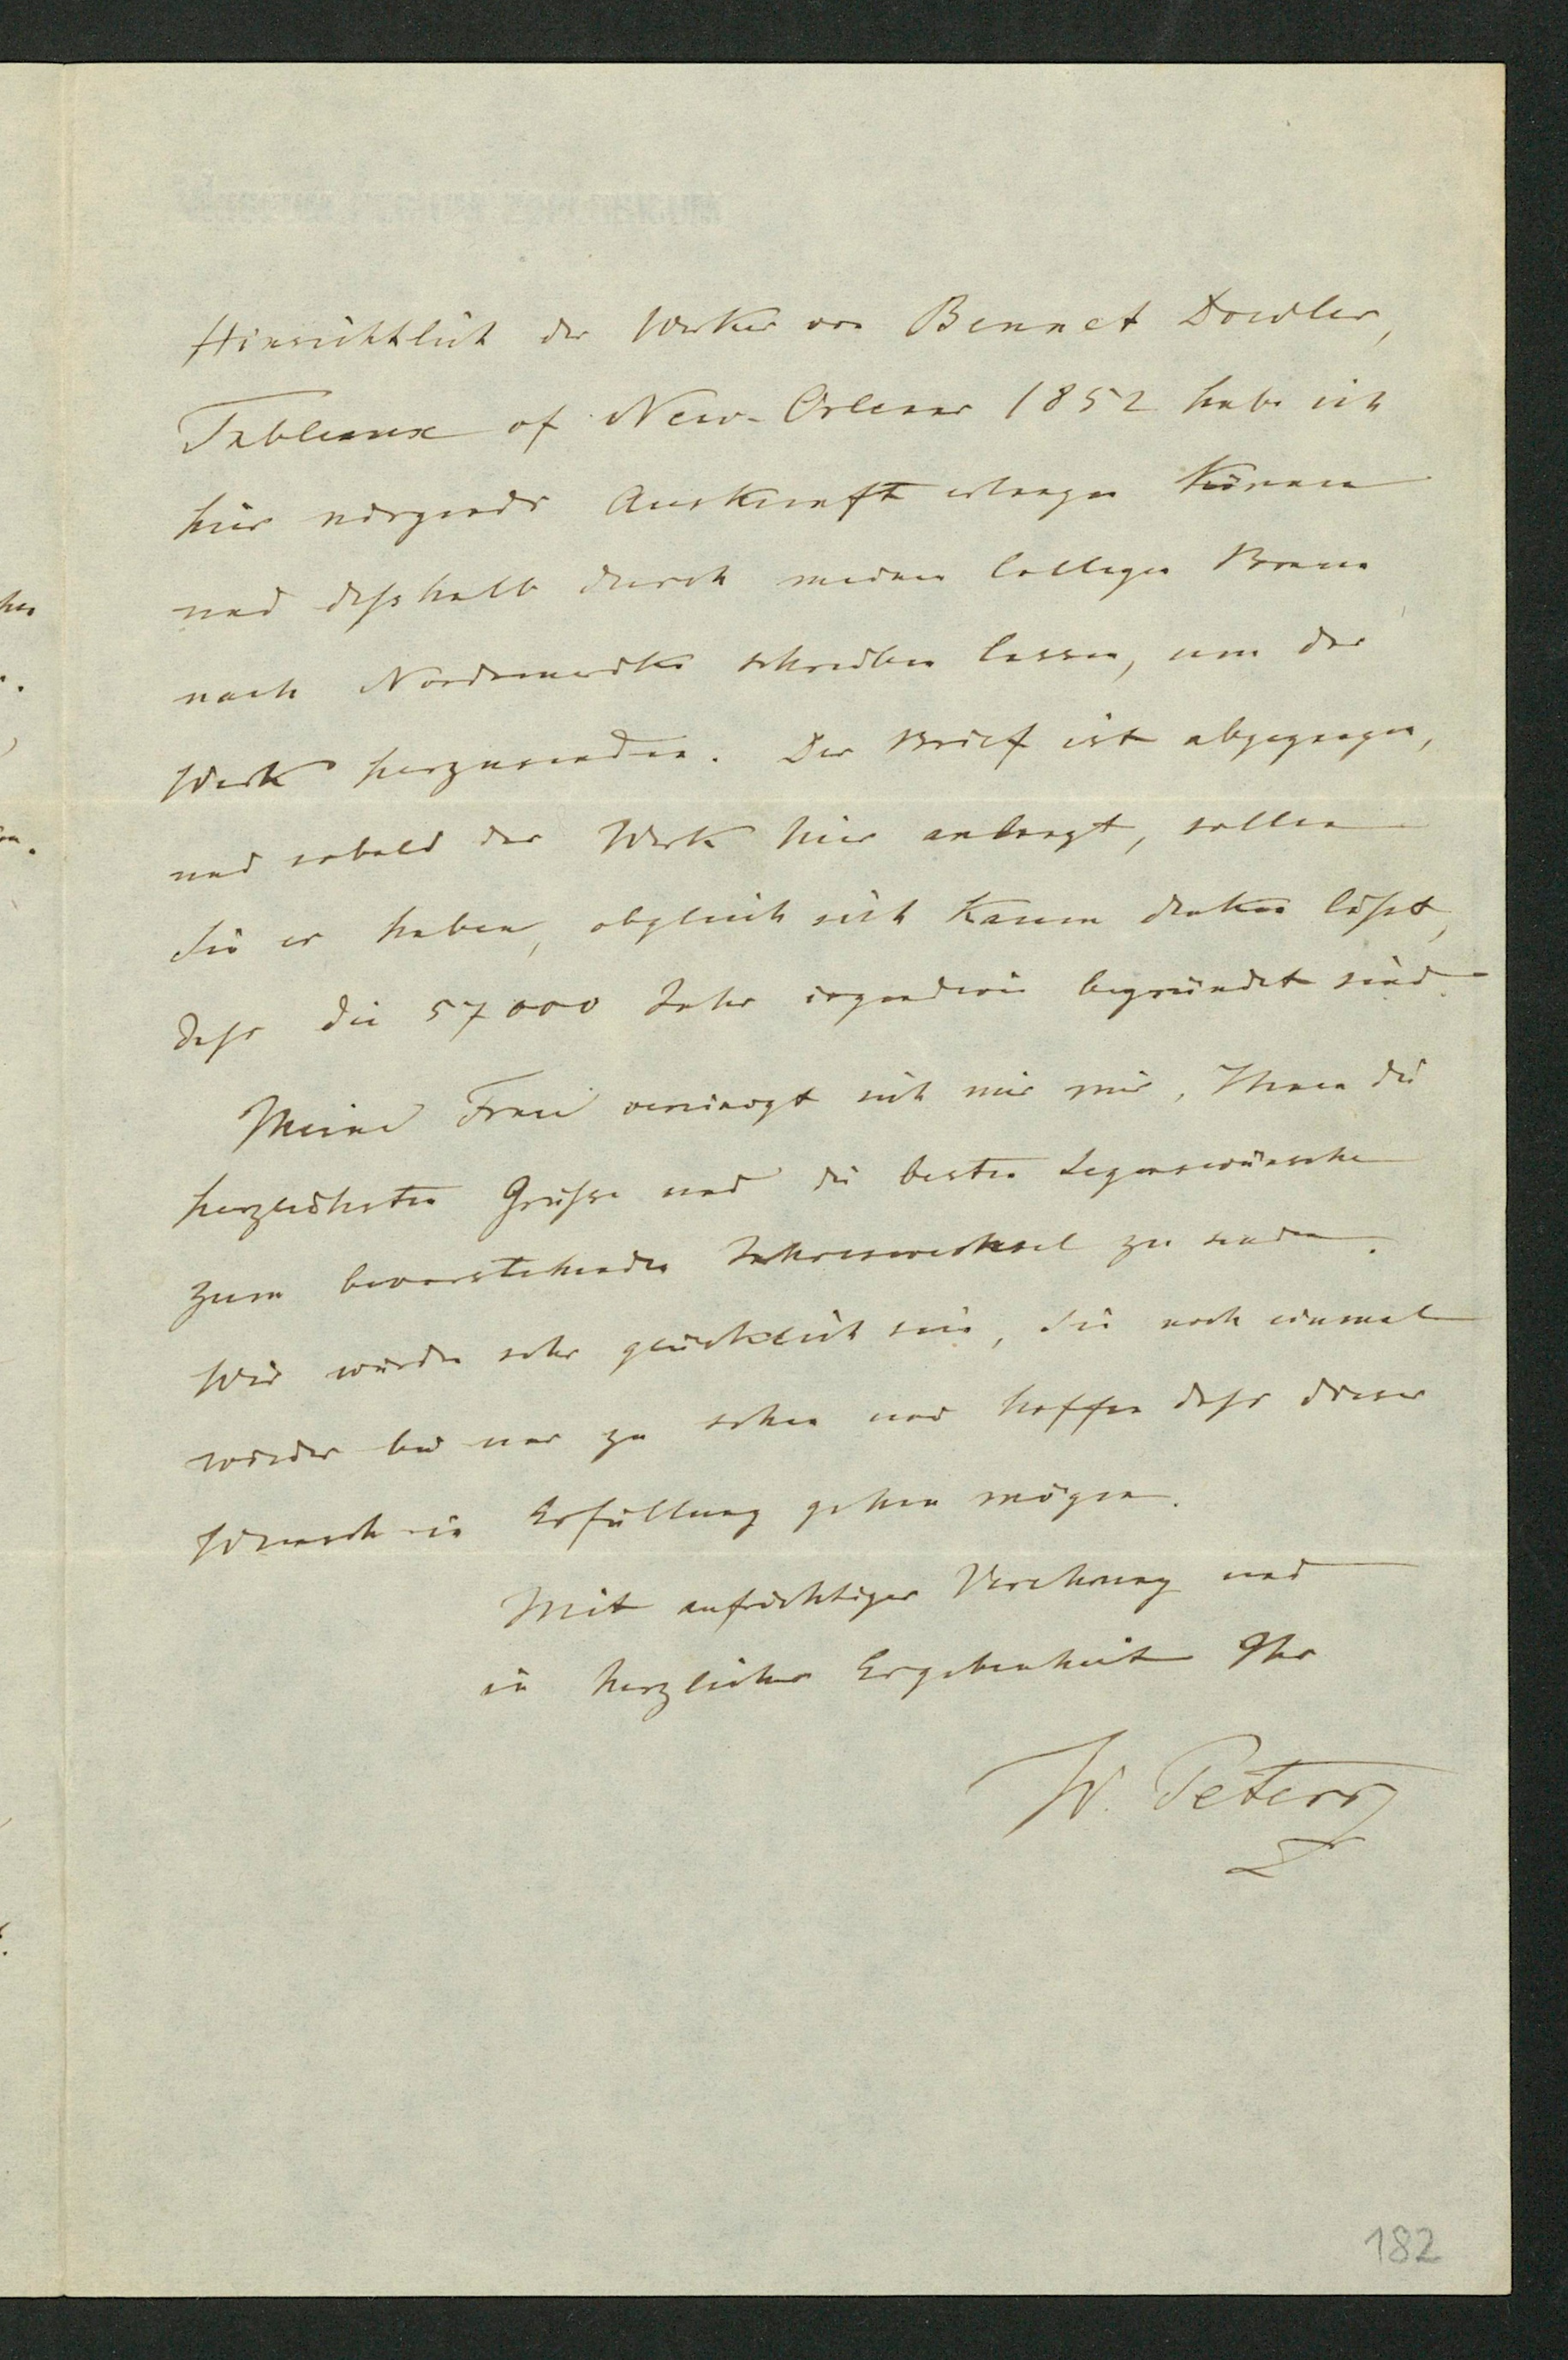 Hinsichtlich des Werkes von Bennet Dowler,
Tableaux of New-Orleans 1852 habe ich
hier nirgends Auskunft erlangen können
und desshalb durch meinen Collegen Braun
nach Nordamerika schreiben lassen, um das
Werk herzusenden. Der Brief ist abgegangen,
und sobald das Werk hier anlangt, sollen
Sie es haben, obgleich sich kaum denken lässt,
dass die 57000 Jahr irgendwie begründet sind.
Meine Frau vereinigt sich mit mir, Ihnen die
herzlichsten Grüsse und die besten Segenswünsche
zum bevorstehenden Jahreswechsel zu senden.
Wir würden sehr glücklich sein, Sie noch einmal
wieder bei uns zu sehen und hoffen dass dieser
Wunsch in Erfüllung gehen mögen.
Mit aufrichtiger Verehrung und
in herzlicher Ergebenheit Ihr
W. Peters
182